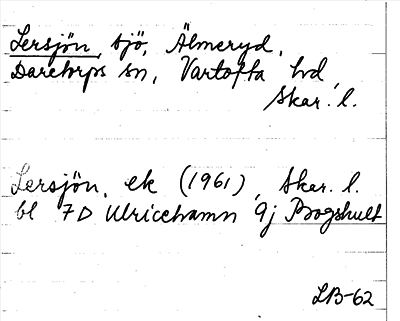 Lersjön, sjö, Älmeryd,
Daretorps sn, Vartofta hd,
Skar. l.
Lersjön, ek (1961), Skar. l.
bl 7D Ulricehamn 9j Bogshult
LB-62